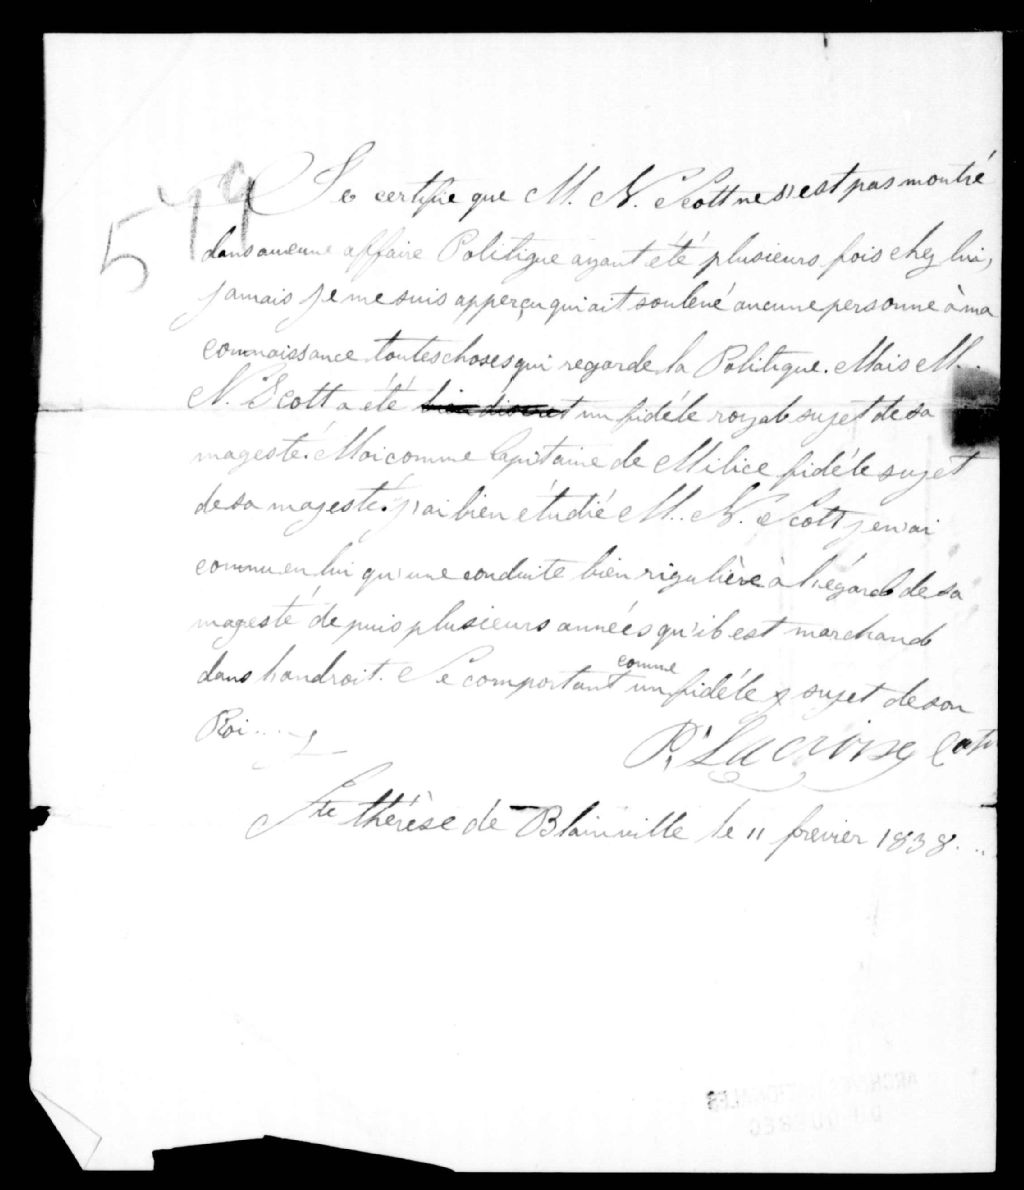 579
Je certifie que M. N. Scott ne s'est pas montré
dans aucune affaire Politique ayant été plusieurs fois chez lui,
jamais je me suis apperçu qui ait soulevé aucune personne à ma
connaissance toutes choses qui regarde la Politique. Mais M.
N. Scott a été bien discret un fidéle royal sujet de sa
magesté. Moi comme Capitaine de Milice fidéle sujet
de sa majesté. j'ai bien étudié M. N. Scott je n'ai
connu en lui qu'une conduite bien rigulière à l'égard de sa
magesté depuis plusieurs années qu'il est marchand
dans l'androit. Se comportant comme un fidéle sujet de son
Roi
P. Lacroix Capt
Ste thérèse de Blainville le 11 frevier 1838
ARCHIVES NATIONALES
DU QUEBEC